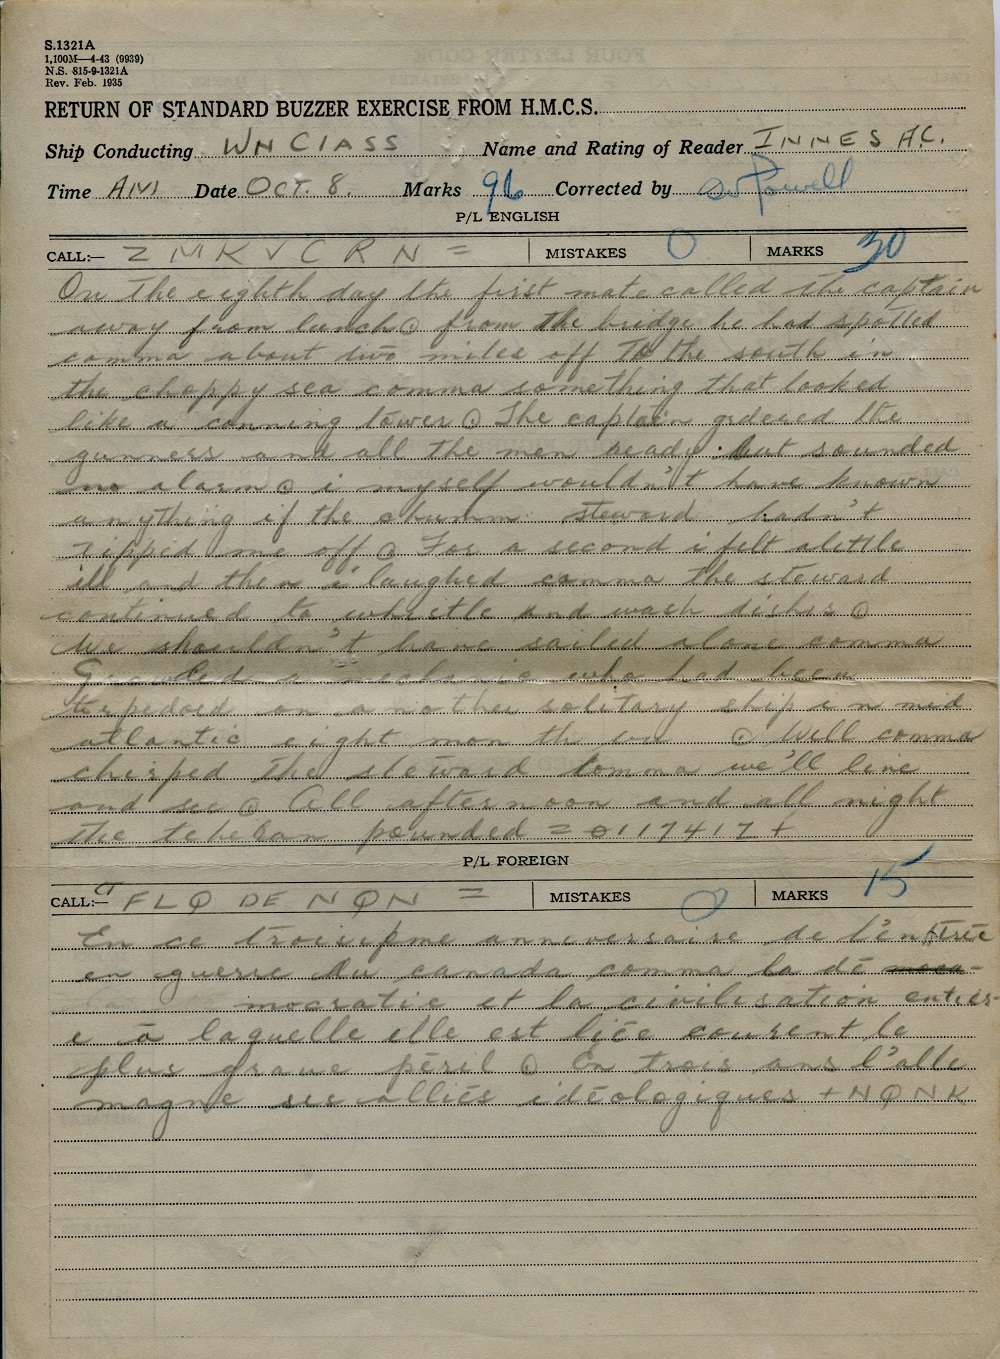 S.1321A
1,100M—4-43 (9939)
N.S. 815-9-1321A
Rev. Feb. 1935
RETURN OF STANDARD BUZZER EXERCISE FROM H.M.C.S.
Ship Conducting WN CLASS Name and Rating of Reader INNES A.C.
Time AM Date OCT. 8. Marks 96 Corrected by Powell
P/L ENGLISH
CALL:— ZMKVCRN = MISTAKES 0 MARKS 30
On the eighth day the first mate called the captain
away from lunch ⊙ from the bridge he had spotted
comma about two miles off to the south in
the choppy sea comma something that looked
like a conning tower ⊙ The captain ordered the
gunners and all the men ready but sounded
no alarm ⊙ i myself wouldn't have known
anything if the steward hadn't
tipped me off ⊙ For a second i felt a little
ill and then i laughed comma the steward
continued to whistle and wash dishes ⊙
We shouldn't have sailed alone comma
Growled a mechanic who had been
torpedoed on another solitary ship in mid
atlantic eight month ⊙ Well comma
chirped the steward comma we'll live
and see ⊙ All afternoon and all night
the teheran pounded = 0117417 +
P/L FOREIGN
CALL:— FLQ DE NQN = MISTAKES 0 MARKS 15
En ce troisième anniversaire de l'entrée
en guerre du canada comma la dé
mocratie et la civilisation entier
e à laquelle elle est liée courent le
plus grave péril ⊙ En trois ans l'alle
magne ses alliés idéologiques + NQN K